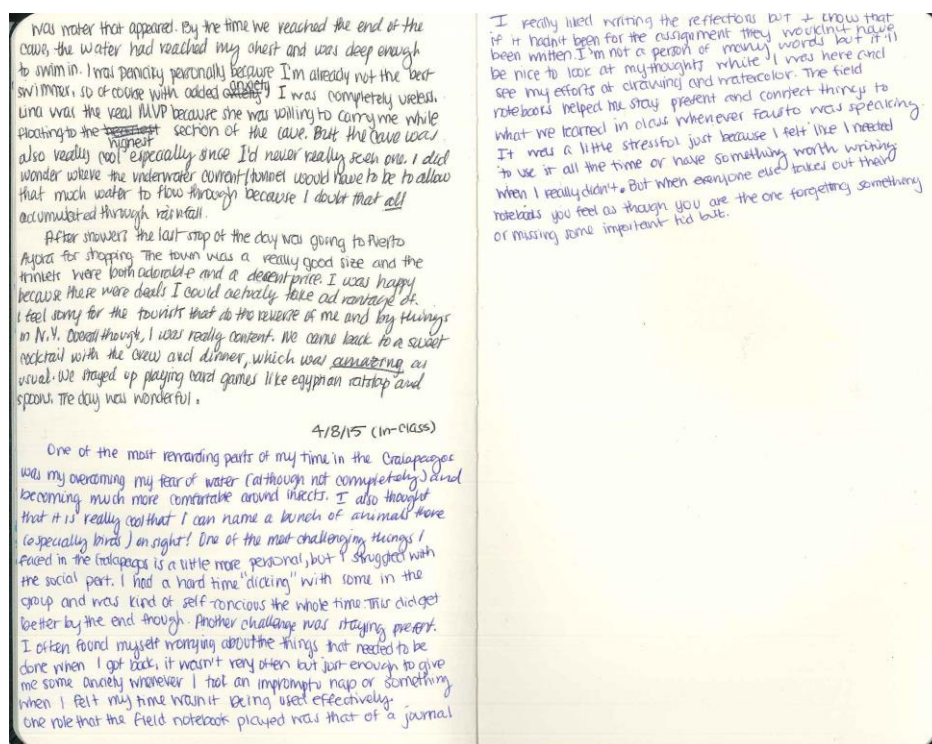 was water that appeared. By the time we reached the end of the
cave, the water had reached my chest and was deep enough
to swim in. I was panicity personally because I'm already not the best
swimmer, so of course with added anxiety I was completely useless.
Lina was the real MVP because she was willing to carry me while
floating to the highest section of the cave. But the cave was
also really cool especially since I'd never really seen one. I did
wonder where the underwater current/tunnel would have to be to allow
that much water to flow through because I doubt that all
accumulated through rainfall.
After showers the last stop of the day was going to Puerto
Ayora for shopping. The town was a really good size and the
trinkets were both adorable and a decent price. I was happy
because these were deals I could actually take advantage of.
I feel sorry for the tourists that do the reverse of me and by things
in N.Y. Overall though, I was really content. We came back to a sweet
cocktail with the crew and dinner, which was amazing as
usual. We stayed up playing card games like egyptian ratslap and
spoons. The day was wonderful.
4/8/15 (In-class)
One of the most rewarding parts of my time in the Galapagos
was my overcoming my fear of water (although not completely) and
becoming much more comfortable around insects. I also thought
that it is really cool that I can name a bunch of animals there
(especially birds) on sight! One of the most challenging things I
faced in the Galapagos is a little more personal, but I struggled with
the social part. I had a hard time "clicking" with some in the
group and was kind of self-concious the whole time. This did get
better by the end though. Another challenge was staying present.
I often found myself worrying about the things that needed to be
done when I got back, it wasn't very often but just enough to give
me some anxiety whenever I took an impromptu nap or something
when I felt my time wasn't being used effectively.
One role that the field notebook played was that of a journal
I really liked writing the reflections but I know that
if it hadn't been for the assignment they wouldn't have
been written. I'm not a person of many words but it'll
be nice to look at my thoughts while I was here and
see my efforts at drawing and watercolor. The field
notebooks helped me stay present and connect things to
what we learned in class whenever Fausto was speaking.
It was a little stressful just because I felt like I needed
to use it all the time or have something worth writing
when I really didn't. But when everyone else takes out their
notebooks you feel as though you are the one forgetting something
or missing some important tid bit.